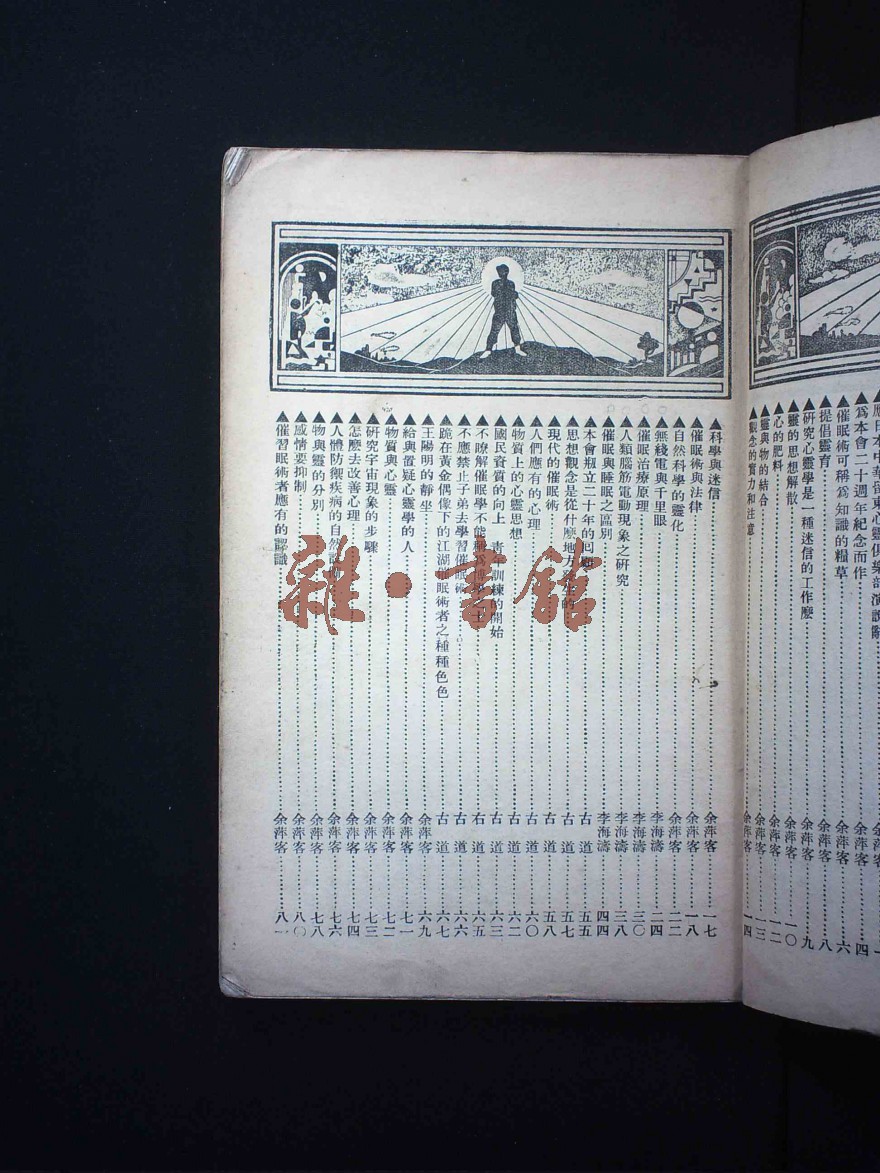 應日本中華留東心靈俱樂部演說辭
爲本會二十週年紀念而作 四
催眠術可稱爲知識的糧草 余萍客 六
提倡靈育 余萍客 八
研究心靈學是一種迷信的工作麽 余萍客 九
靈的思想解散 余萍客 一〇
心的肥料 余萍客 一二
靈與物的結合 余萍客 一三
觀念的實力和注意 余萍客 一四
▲科學與迷信 余萍客 一七
▲催眠術與法律 余萍客 一八
▲自然科學的靈化 余萍客 二二
▲無綫電與千里眼 李海濤 二四
▲催眠治療原理 李海濤 三〇
▲人類腦筋電動現象之研究 李海濤 三八
▲催眠與睡眠之區別 李海濤 四四
▲本會瓶立二十年的回顧 古道 五五
▲思想觀念是從什麽地方發生的 古道 五七
▲現代的催眠術 古道 五八
▲人們應有的心理 古道 六〇
▲物質上的心靈思想 古道 六二
▲國民資質的向上 青年訓練的開始 古道 六三
▲不瞭解催眠學不能稱爲博學之士 古道 六五
▲不應禁止子弟去學習催眠術 古道 六六
▲跪在黃金偶像下的江湖催眠術者之種種色色 古道 六七
▲王陽明的靜坐 余萍客 六九
▲給與置疑心靈學的人 余萍客 七一
▲物質與心靈 余萍客 七二
▲研究宇宙現象的步驟 余萍客 七三
▲怎麽去改善心理 余萍客 七四
▲人體防禦疾病的自然 余萍客 七六
▲物與靈的分別 余萍客 七八
▲感情要抑制 余萍客 八〇
▲催習眠術者應有的認識 余萍客 八一
雜·書館